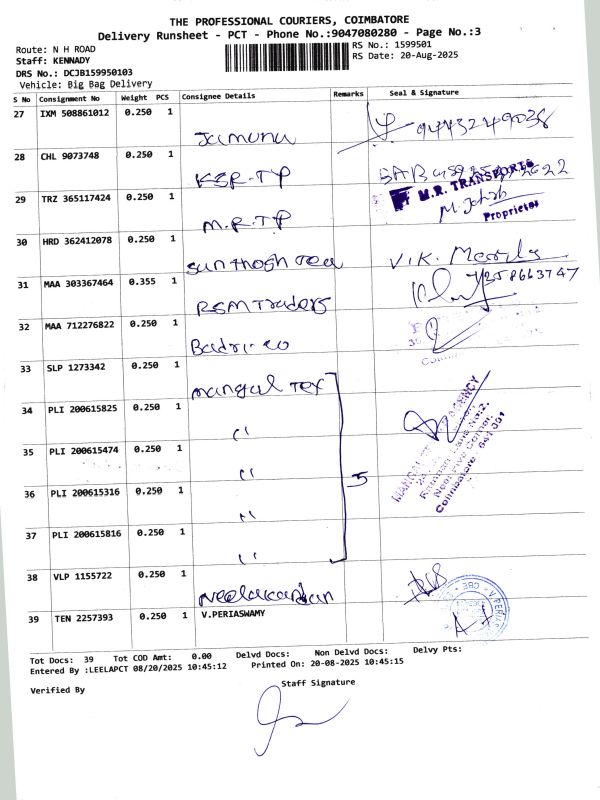 THE PROFESSIONAL COURIERS, COIMBATORE
Delivery Runsheet - PCT - Phone No.:9047080280 - Page No.:3
Route: N H ROAD
Staff: KENNADY
DRS No.: DCJB159950103
Vehicle: Big Bag Delivery
RS No.: 1599501
RS Date: 20-Aug-2025
S No Consignment No Weight PCS Consignee Details Remarks Seal & Signature
27 IXM 508861012 0.250 1
Jamuna
28 CHL 9073748 0.250 1
KSR-TP
29 TRZ 365117424 0.250 1
M.R.TP
M.R. TRANSPORTS
Proprietor
30 HRD 362412078 0.250 1
V.K.
31 MAA 303367464 0.355 1
RSM Traders
32 MAA 712276822 0.250 1
Badri-co
33 SLP 1273342 0.250 1
mangal Tex
34 PLI 200615825 0.250 1
"
35 PLI 200615474 0.250 1
"
5
36 PLI 200615316 0.250 1
"
37 PLI 200615816 0.250 1
"
AGENCY
Coimbatore - 641 001
38 VLP 1155722 0.250 1
Neelakandan
39 TEN 2257393 0.250 1 V.PERIASWAMY
Tot Docs: 39 Tot COD Amt: 0.00 Delvd Docs: Non Delvd Docs: Delvy Pts:
Entered By :LEELAPCT 08/20/2025 10:45:12 Printed On: 20-08-2025 10:45:15
Verified By
Staff Signature